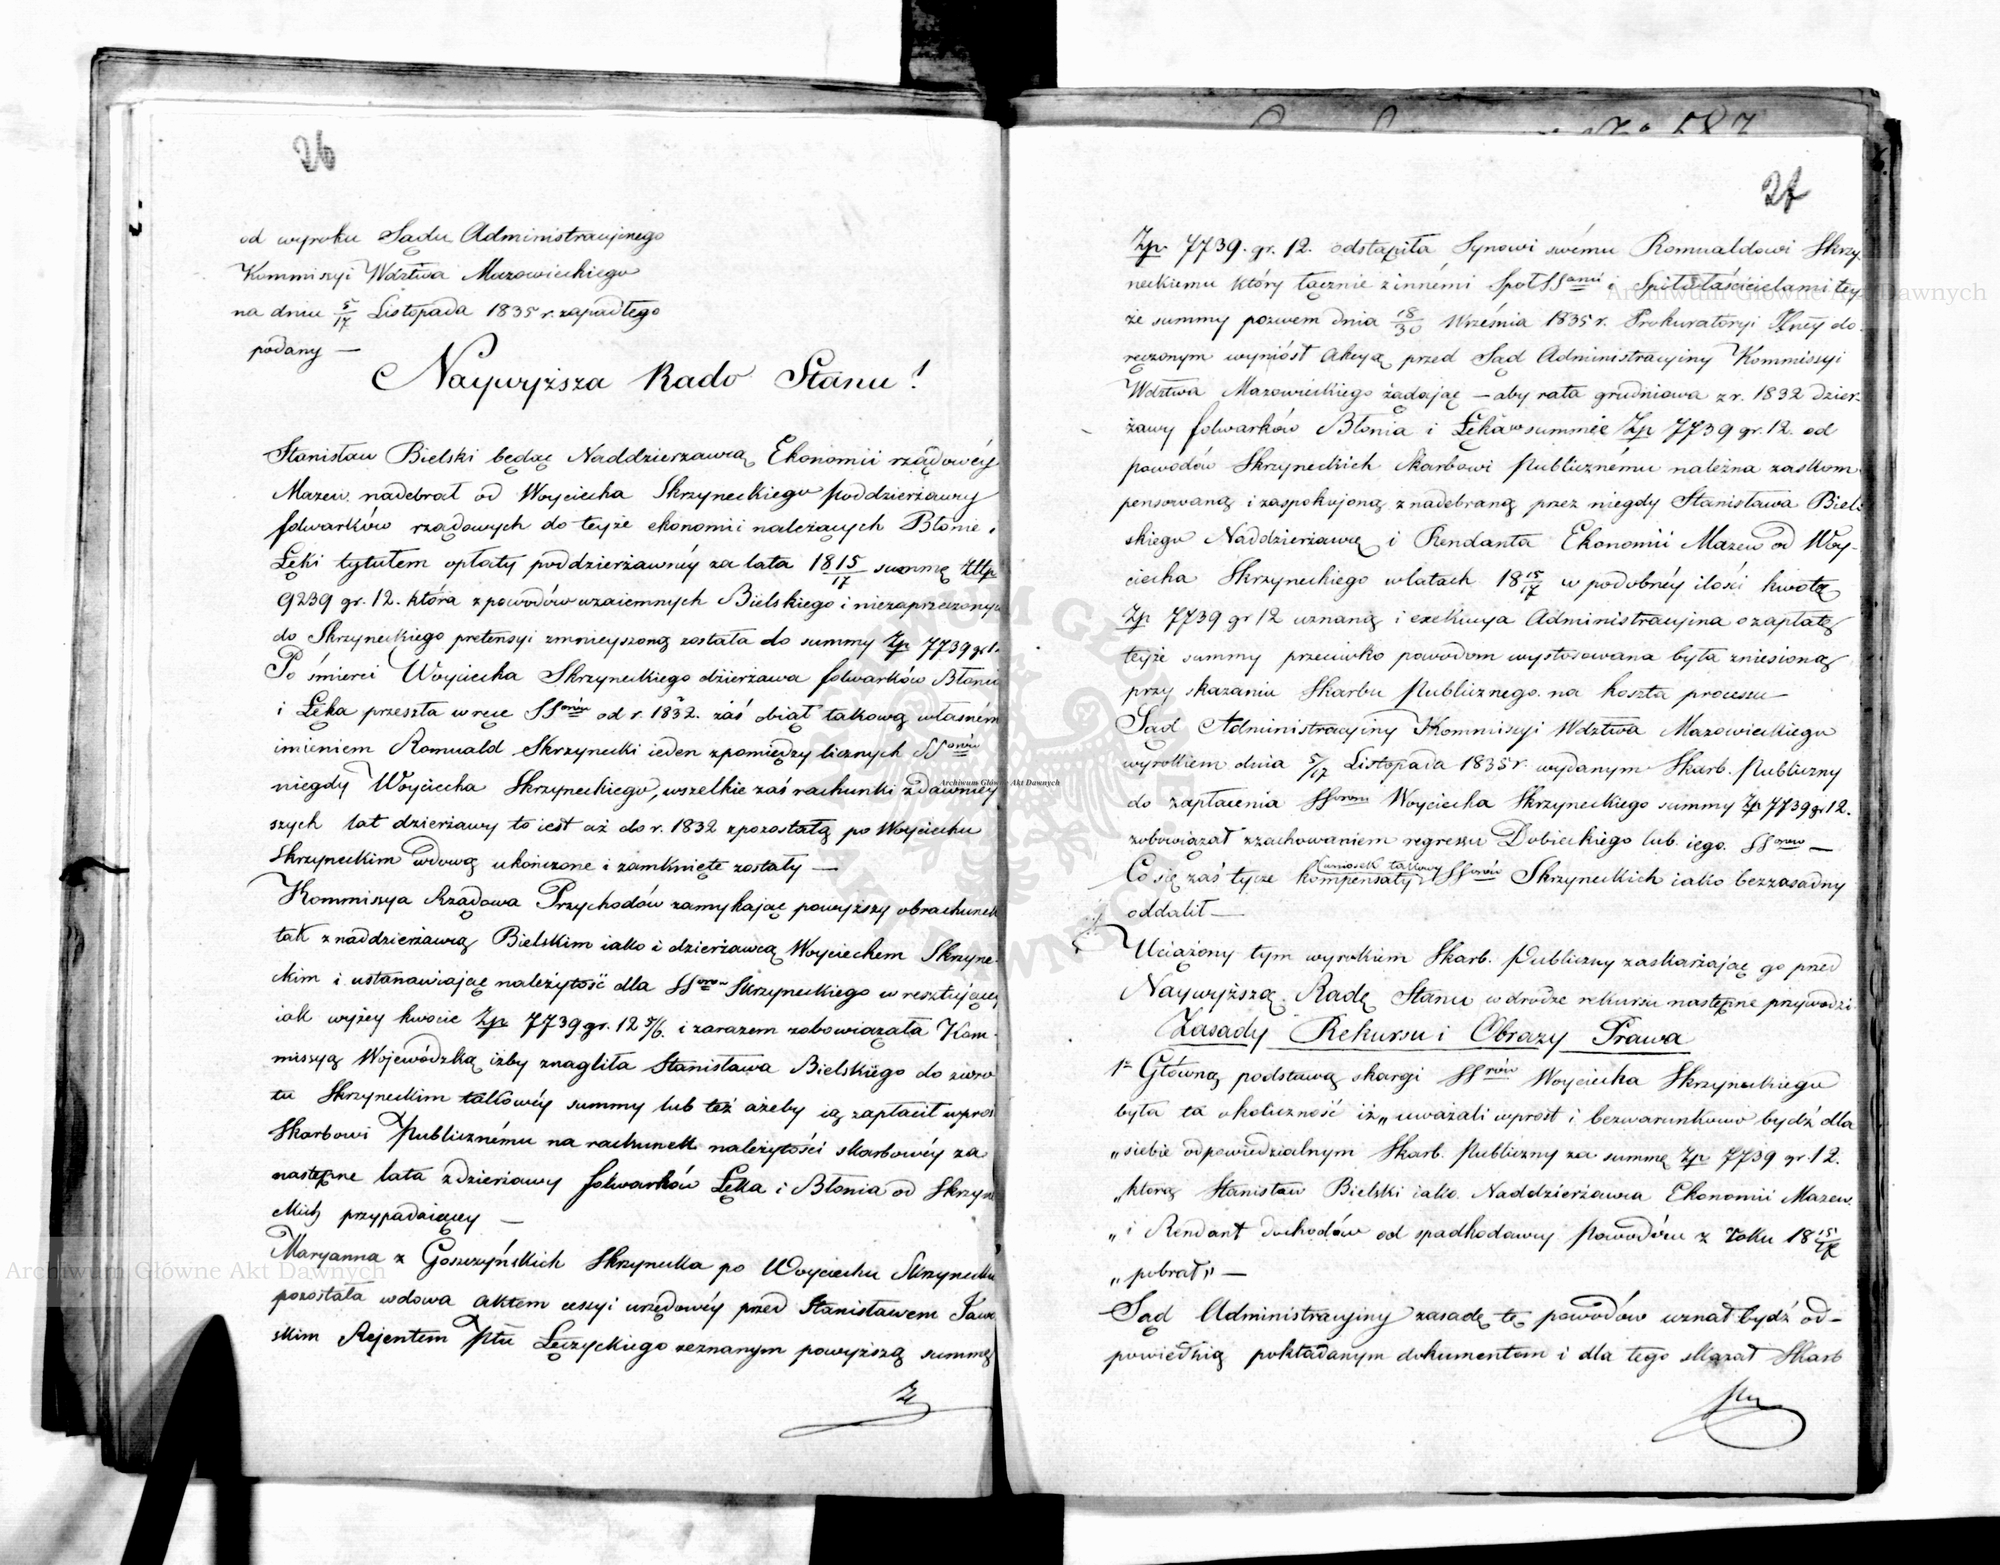 26
od wyroku Sądu Administracyjnego
Kommissyi Wdztwa Mazowieckiego
na dniu 5/17 Listopada 1835 r. zapadłego
podany —
Naywyższa Rado Stanu!
Stanisław Bielski będąc Naddzierzawcą Ekonomii rządowéy
Mazew nadebrał od Woyciecha Skrzyneckiego poddzierżawcy
folwarków rządowych do teyże ekonomii należących Błonie i
Łęki tytułem opłaty poddzierżawnéy za lata 1815/17 summę Złtp
9239 gr. 12. która z powodów wzaiemnych Bielskiego i niezaprzeczonych
do Skrzyneckiego pretensyi zmnieyszoną została do summy Zp 7739 gr 12
Po śmierci Woyciecha Skrzyneckiego dzierżawa folwarków Błonia
i Łęka przeszła w ręce SSorów od r. 1832. zaś obiął takową własném
imieniem Romuald Skrzynecki ieden z pomiędzy licznych SSorów
niegdy Woyciecha Skrzyneckiego, wszelkie zaś rachunki z dawniey
szych lat dzierżawy to iest aż do r. 1832 z pozostałą po Woyciechu
Skrzyneckim wdową ukończone i zamknięte zostały —
Kommissya Rządowa Przychodów zamykaiąc powyższy obrachunek
tak z naddzierżawcą Bielskim iako i dzierżawcą Woyciechem Skrzyne-
ckim i ustanawiaiąc należytość dla SSorów Skrzyneckiego w resztuiącey
iak wyżey kwocie Zp 7739 gr. 12 5/6. i zarazem zobowiązała Kom-
missyą Wojewódzką iżby znagliła Stanisława Bielskiego do zwro
tu Skrzyneckim takowéy summy lub też ażeby ią zapłacił wprost
Skarbowi Publicznému na rachunek należytości skarbowéy za
następne lata z dzierżawy folwarków Łęka i Błonia od Skrzyne
ckich przypadaiącey —
Maryanna z Goszczyńskich Skrzynecka po Woyciechu Skrzynecki
pozostała wdowa aktem cessyi urzędowéy przed Stanisławem Jaw
skim Rejentem Ptu Łęczyckiego zeznanym powyższą summę
27
Zp. 7739. gr. 12. odstąpiła Synowi swému Romualdowi Skrzy-
neckiemu który łącznie z innémi SpołSSami i Spółwłaścicielami tey
że summy pozwem dnia 18/30 Września 1835 r. Prokuratoryi Jlnéy do-
ręczonym wyniósł akcyą przed Sąd Administracyiny Kommissyi
Wdztwa Mazowieckiego żądaiąc — aby rata grudniowa z r. 1832 dzier-
żawy folwarków Błonia i Łęka w summie Zp 7739 gr. 12. od
powodów Skrzyneckich Skarbowi Publicznému należna zaskom-
pensowaną i zaspokojoną z nadebraną przez niegdy Stanisława Biel-
skiego Naddzierżawcę i Rendanta Ekonomii Mazew od Woy-
ciecha Skrzyneckiego w latach 1815/17 w podobnéy ilości kwotą
Zp 7739 gr 12 uznaną i exekucya Administracyina o zapłatę
teyże summy przeciwko powodom wystosowana była zniesioną
przy skazaniu Skarbu Publicznego na koszta processu —
Sąd Administracyiny Kommissyi Wdztwa Mazowieckiego
wyrokiem dnia 5/17 Listopada 1835 r. wydanym Skarb. Publiczny
do zapłacenia SSorom Woyciecha Skrzyneckiego summy Zp 7739 gr 12.
zobowiązał z zachowaniem regressu Dobieckiego lub. iego. SSorów —
wniosek takowy
Co się zaś tycze kompensaty SSorów Skrzyneckich iako bezzasadny
oddalił —
Uciążony tym wyrokiem Skarb. Publiczny zaskarżając go przed
Naywyższą. Radę Stanu w drodze rekursu następne przywodzi
Zasady Rekursu i Obrazy Prawa
1e Główną podstawą skargi SSrów Woyciecha Skrzyneckiego
była ta okoliczność iż „uważali wprost i bezwarunkowo bydź dla
„siebie odpowiedzialnym Skarb. Publiczny za summę Zp 7739 gr. 12.
„którą Stanisław Bielski iako. Naddzierżawca Ekonomii Mazew.
„i Rendant dochodów od spadkodawcy Powodów z roku 1815/17
„pobrał„ —
Sąd Administracyiny zasadę tę powodów uznał bydź od-
powiednią pokładanym dokumentom i dla tego skazał Skarb
Archiwum Główne Akt Dawnych